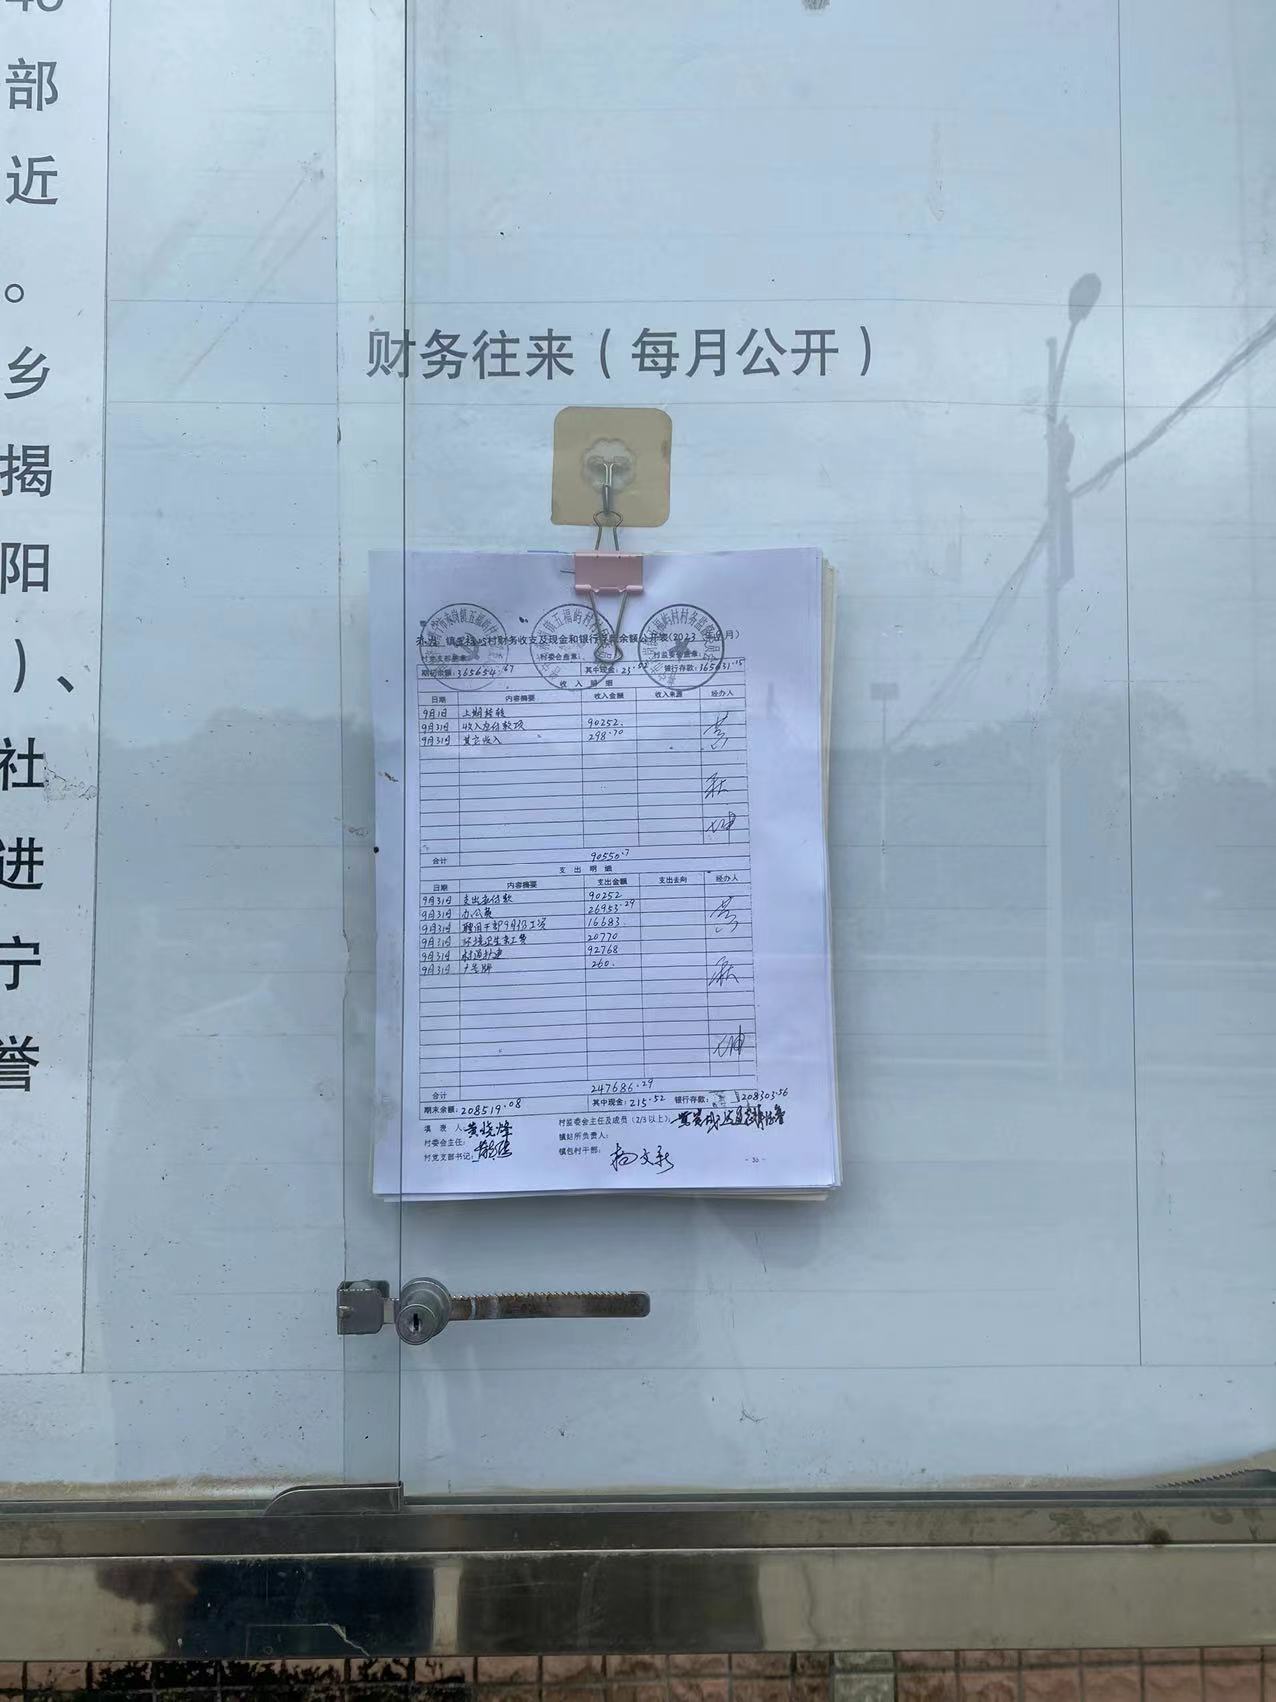 部
近
。
乡
揭
阳
)、
社
进
宁
誉
财务往来(每月公开)
镇 村财务收支及现金和银行 余额公开表(2023 月)
村党支部盖章: 村委会盖章: 村监委会盖章:
期初余额:365654.67 其中现金:23.52 银行存款:365631.15
收 入 明 细
日期 内容摘要 收入金额 收入来源 经办人
9月1日 上期结转
9月31日 收入应付款项 90252.
9月31日 其它收入 298.70
合计 90550.7
支 出 明 细
日期 内容摘要 支出金额 支出去向 经办人
9月31日 支出应付款 90252
9月31日 办公费 26953.29
9月31日 聘用干部9月份工资 16683.
9月31日 环境卫生杂工费 20770
9月31日 村道扩建 92768
9月31日 户号牌 260.
合计 247686.29
期末余额:208519.08 其中现金:215.52 银行存款: 208303.56
填表人: 黄晓烽 村监委会主任及成员(2/3以上):
村委会主任: 镇站所负责人:
村党支部书记: 镇包村干部: